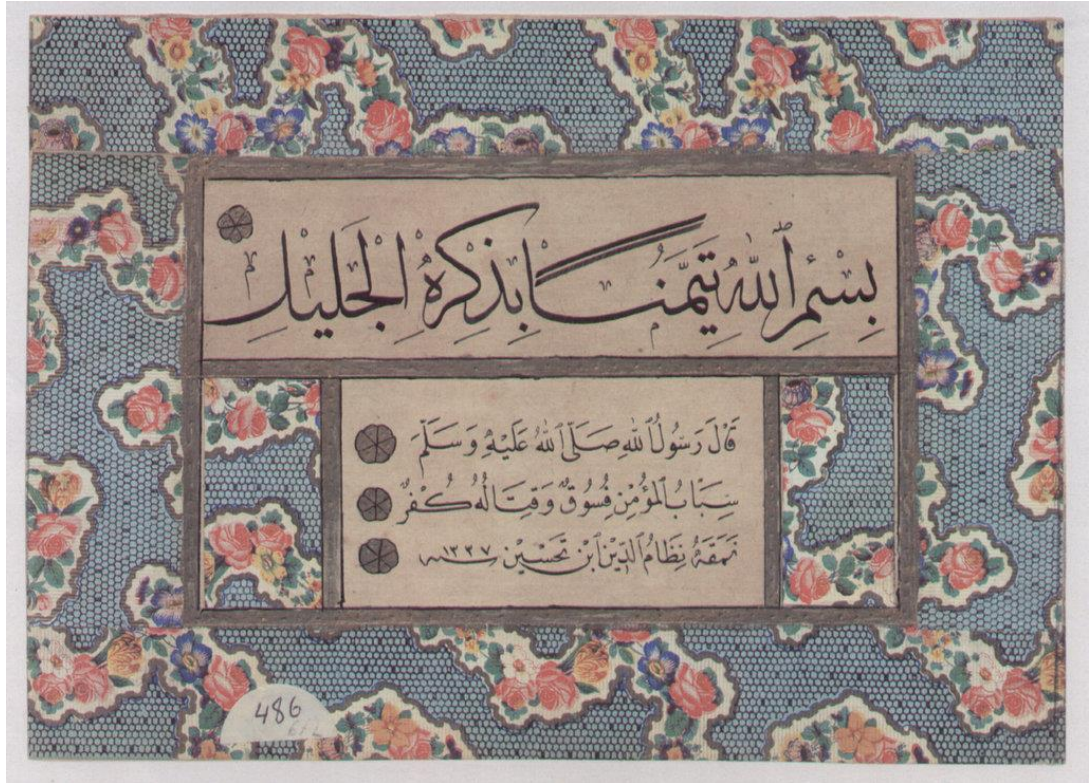 بِسْمِ ٱللّٰهِ تَيَمُّنًا بِذِكْرِهِ الْجَلِيلِ
قَالَ رَسُولُ ٱللّٰهِ صَلَّى ٱللّٰهُ عَلَيْهِ وَسَلَّمَ
سِبَابُ ٱلْمُؤْمِنِ فُسُوقٌ وَقِتَالُهُ كُفْرٌ
نَمَقَهُ نِظَامُ ٱلدِّينِ ٱبْنِ تَحْسِين سنه ١٣٢٧
486